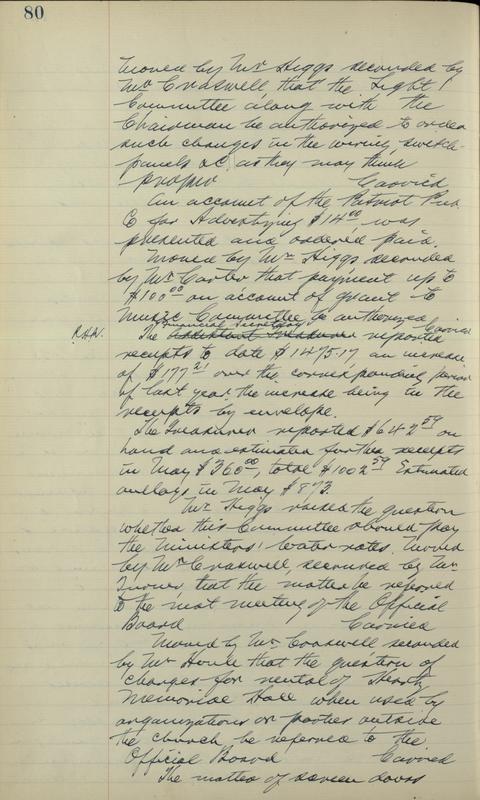 80
Moved by Mr Higgs seconded by
Mr Craswell that the Light
Committee along with the
Chairman be authorized to order
such changes in the wiring, switch
panels &c, as they may think
proper Carried
An account of the Patriot Pub
Co for Advertizing $14.00 was
presented and ordered paid.
Moved by Mr Higgs seconded
by Mr Carter that payment up to
$100.00 on account of grant to
Music Committee be authorized
Carried
R.H.W. The Financial Secretary Assistant Treasurer reported
receipts to date $1475.17 an increase
of $177.21 over the corresponding period
of last year, the increase being in the
receipts by envelope.
The Treasurer reported $642.59 on
hand and estimated further receipts
in May $360.00, total $1002.59 Estimated
outlays in May $873.
Mr Higgs raised the question
whether this Committee should pay
the Ministers' water rates. Moved
by Mr Craswell, seconded by Mr
that the matter be referred
to the next meeting of the Official
Board Carried
Moved by Mr Craswell seconded
by Mr that the question of
charges for rental of
Memorial Hall when used by
organizations or parties outside
the church, be referred to the
Official Board Carried
The matter of screen doors